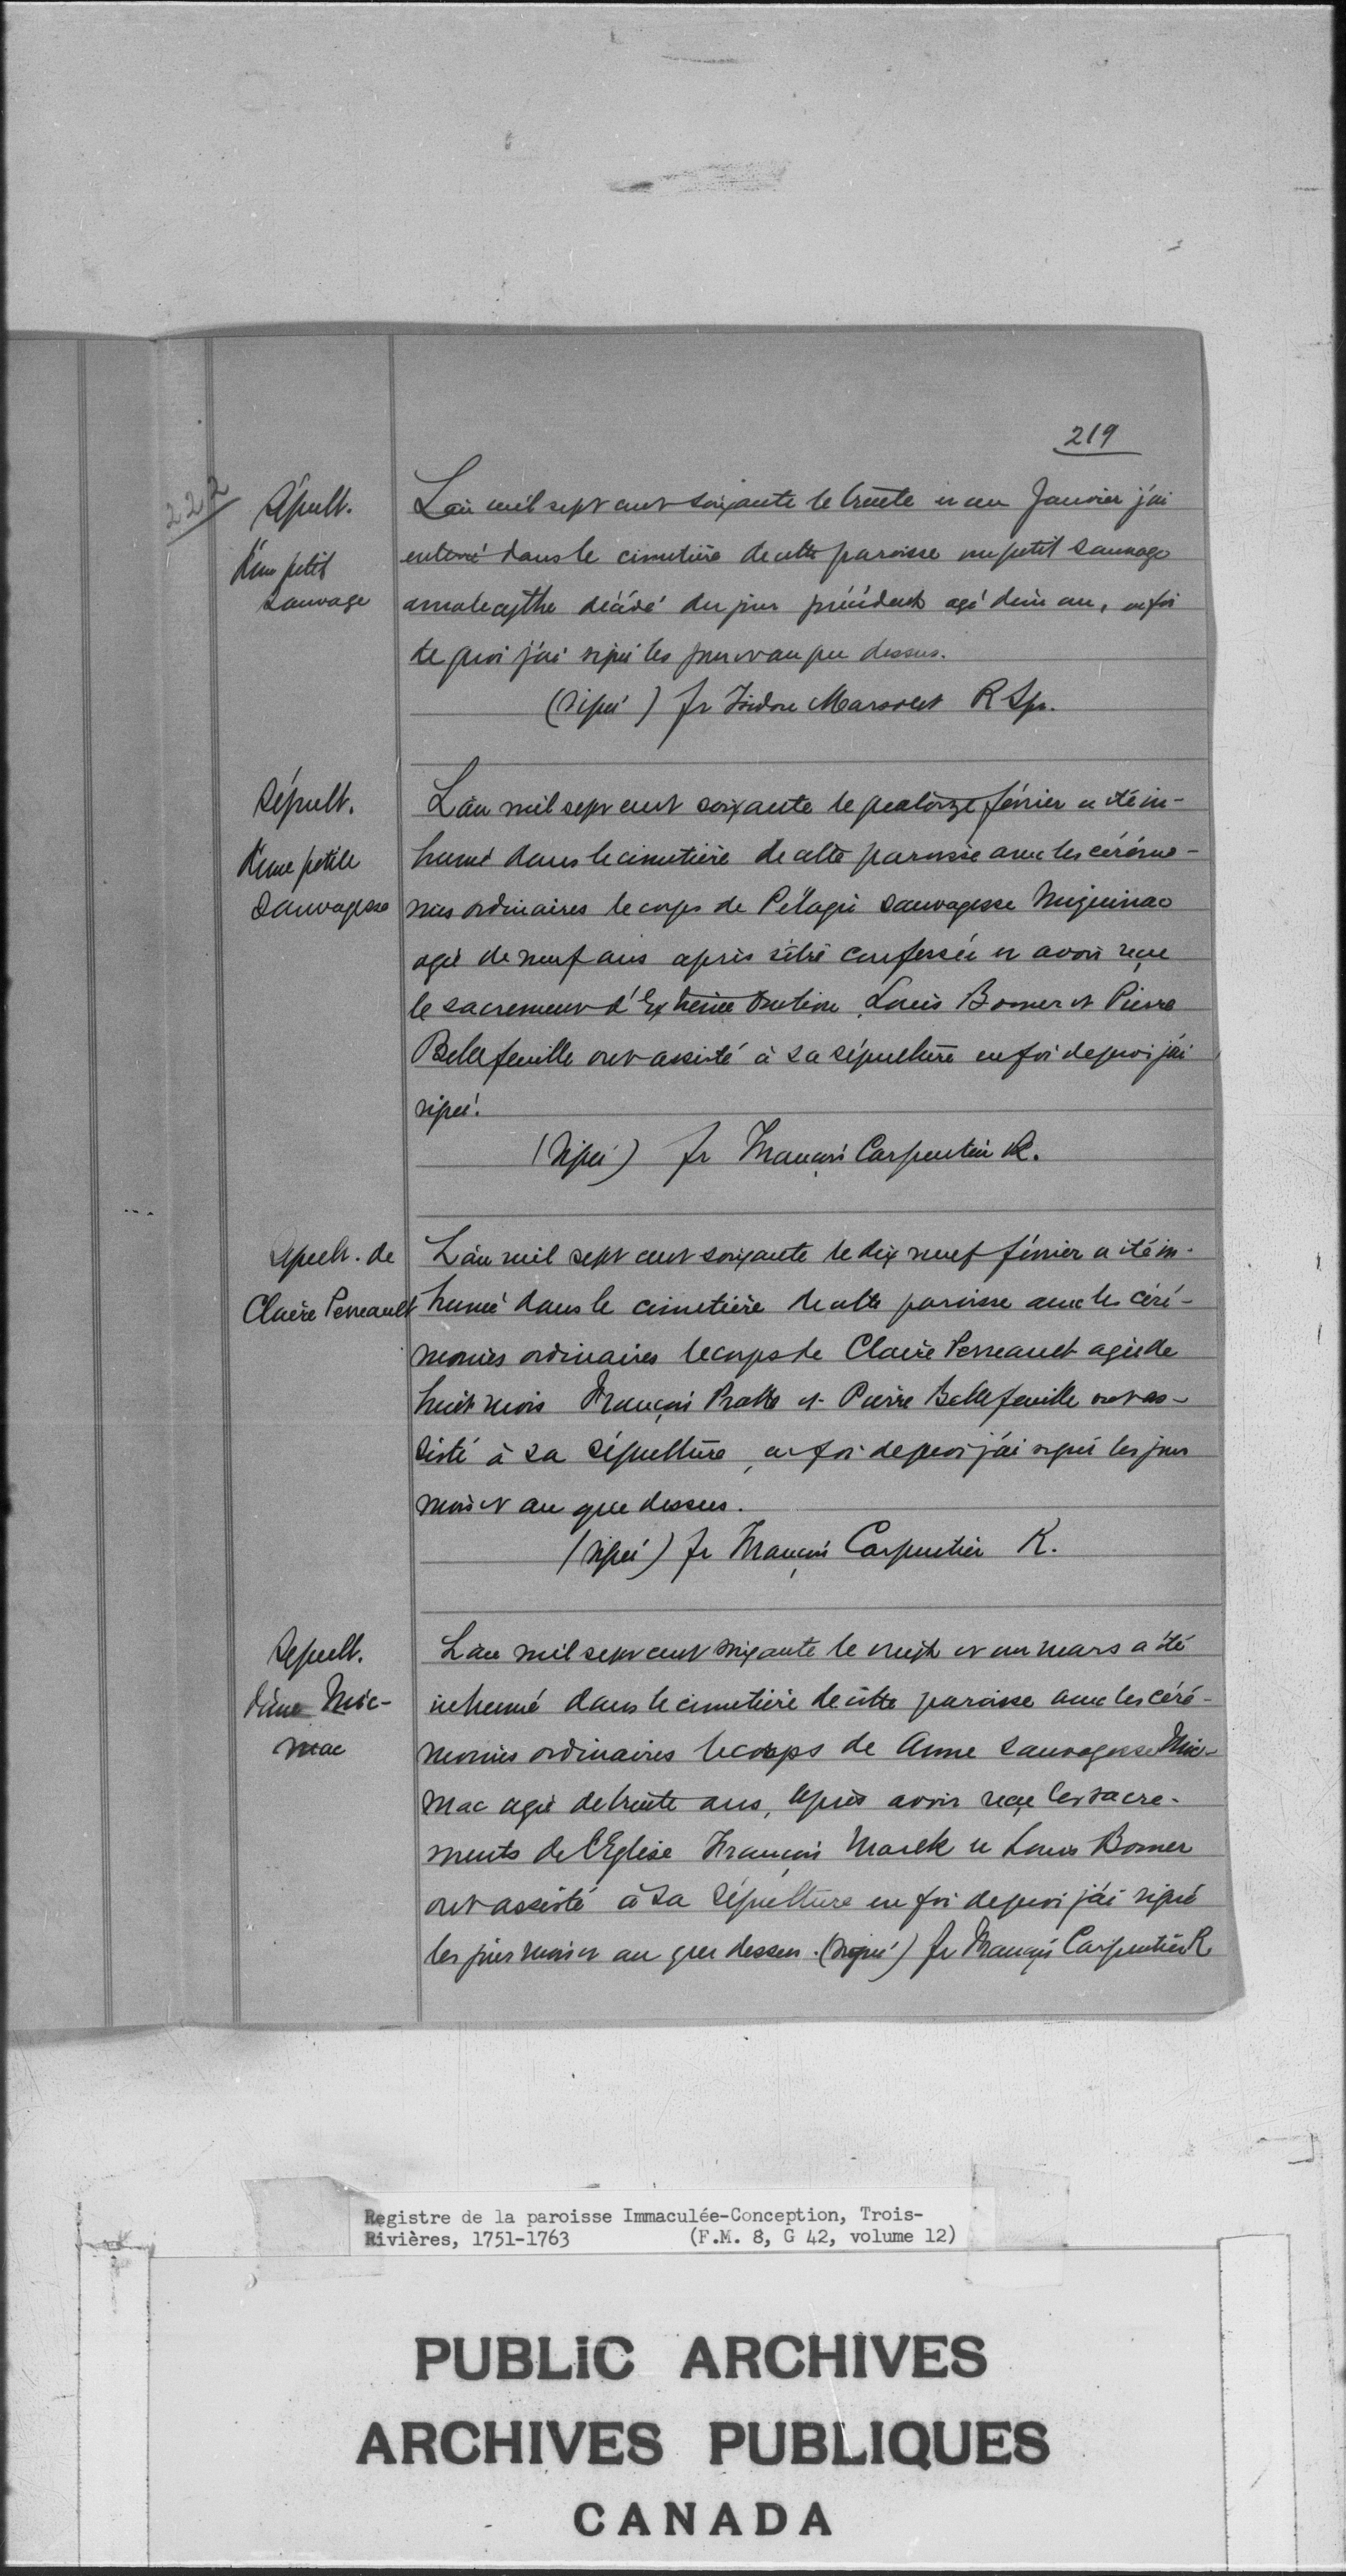 219
222
Sépult.
d'un petit
sauvage
L'an mil sept cent soixante le trente et un Janvier j'ai
enterré dans le cimetière de cette paroisse un petit sauvage
amalecythe décédé du jour précédent agé d'un an, en foi
de quoi j'ai signé les jour et an que dessus.
(Signé) fr Isidore Marsolet R Sp.
Sépult.
d'une petite
Sauvagesse
L'an mil sept cent soixante le quatorze février a été in-
humé dans le cimetière de cette paroisse avec les cérémo-
nies ordinaires le corps de Pélagie sauvagesse Miguinac
agée de neuf ans après s'être confessée et avoir reçue
le sacrement d'Extrême Onction Louis Bomer et Pierre
Bellefeuille ont assisté à sa sépulture en foi de quoi j'ai
signé.
(Signé) fr François Carpentier R.
Sépult. de
Claire Perreault
L'an mil sept cent soixante le dix neuf février a été in-
humé dans le cimetière de cette paroisse avec les céré-
monies ordinaires le corps de Claire Perreault agée de
huit mois François Pratte et Pierre Bellefeuille ont as-
sisté à sa sépulture, en foi de quoi j'ai signé les jour
mois et an que dessus.
(Signé) fr François Carpentier R.
Sepult.
d'une Mic-
mac
L'an mil sept cent soixante le vingt et un mars a été
inhumé dans le cimetière de cette paroisse avec les céré-
monies ordinaires le corps de Anne sauvagesse Mic-
mac agée de trente ans, après avoir reçu les sacre-
ments de l'Eglise François Marek et Louis Bomer
ont assisté à sa sépulture en foi de quoi j'ai signé
les jour mois et an que dessus. (Signé) fr François Carpentier R
Registre de la paroisse Immaculée-Conception, Trois-
Rivières, 1751-1763 (F.M. 8, G 42, volume 12)
PUBLIC ARCHIVES
ARCHIVES PUBLIQUES
CANADA